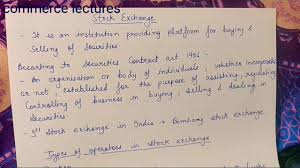 commerce lectures
Stock Exchange
- It is an institution providing platform for buying &
Selling of Securities
According to Securities Contract act 1956 -
- An organisation or body of individuals, whether incorporated
or not, established for the purpose of assisting, regulating
Controlling of business in buying, selling & dealing in
Securities.
- 1st Stock exchange in India → Bombay stock exchange
Types of operators in stock exchange